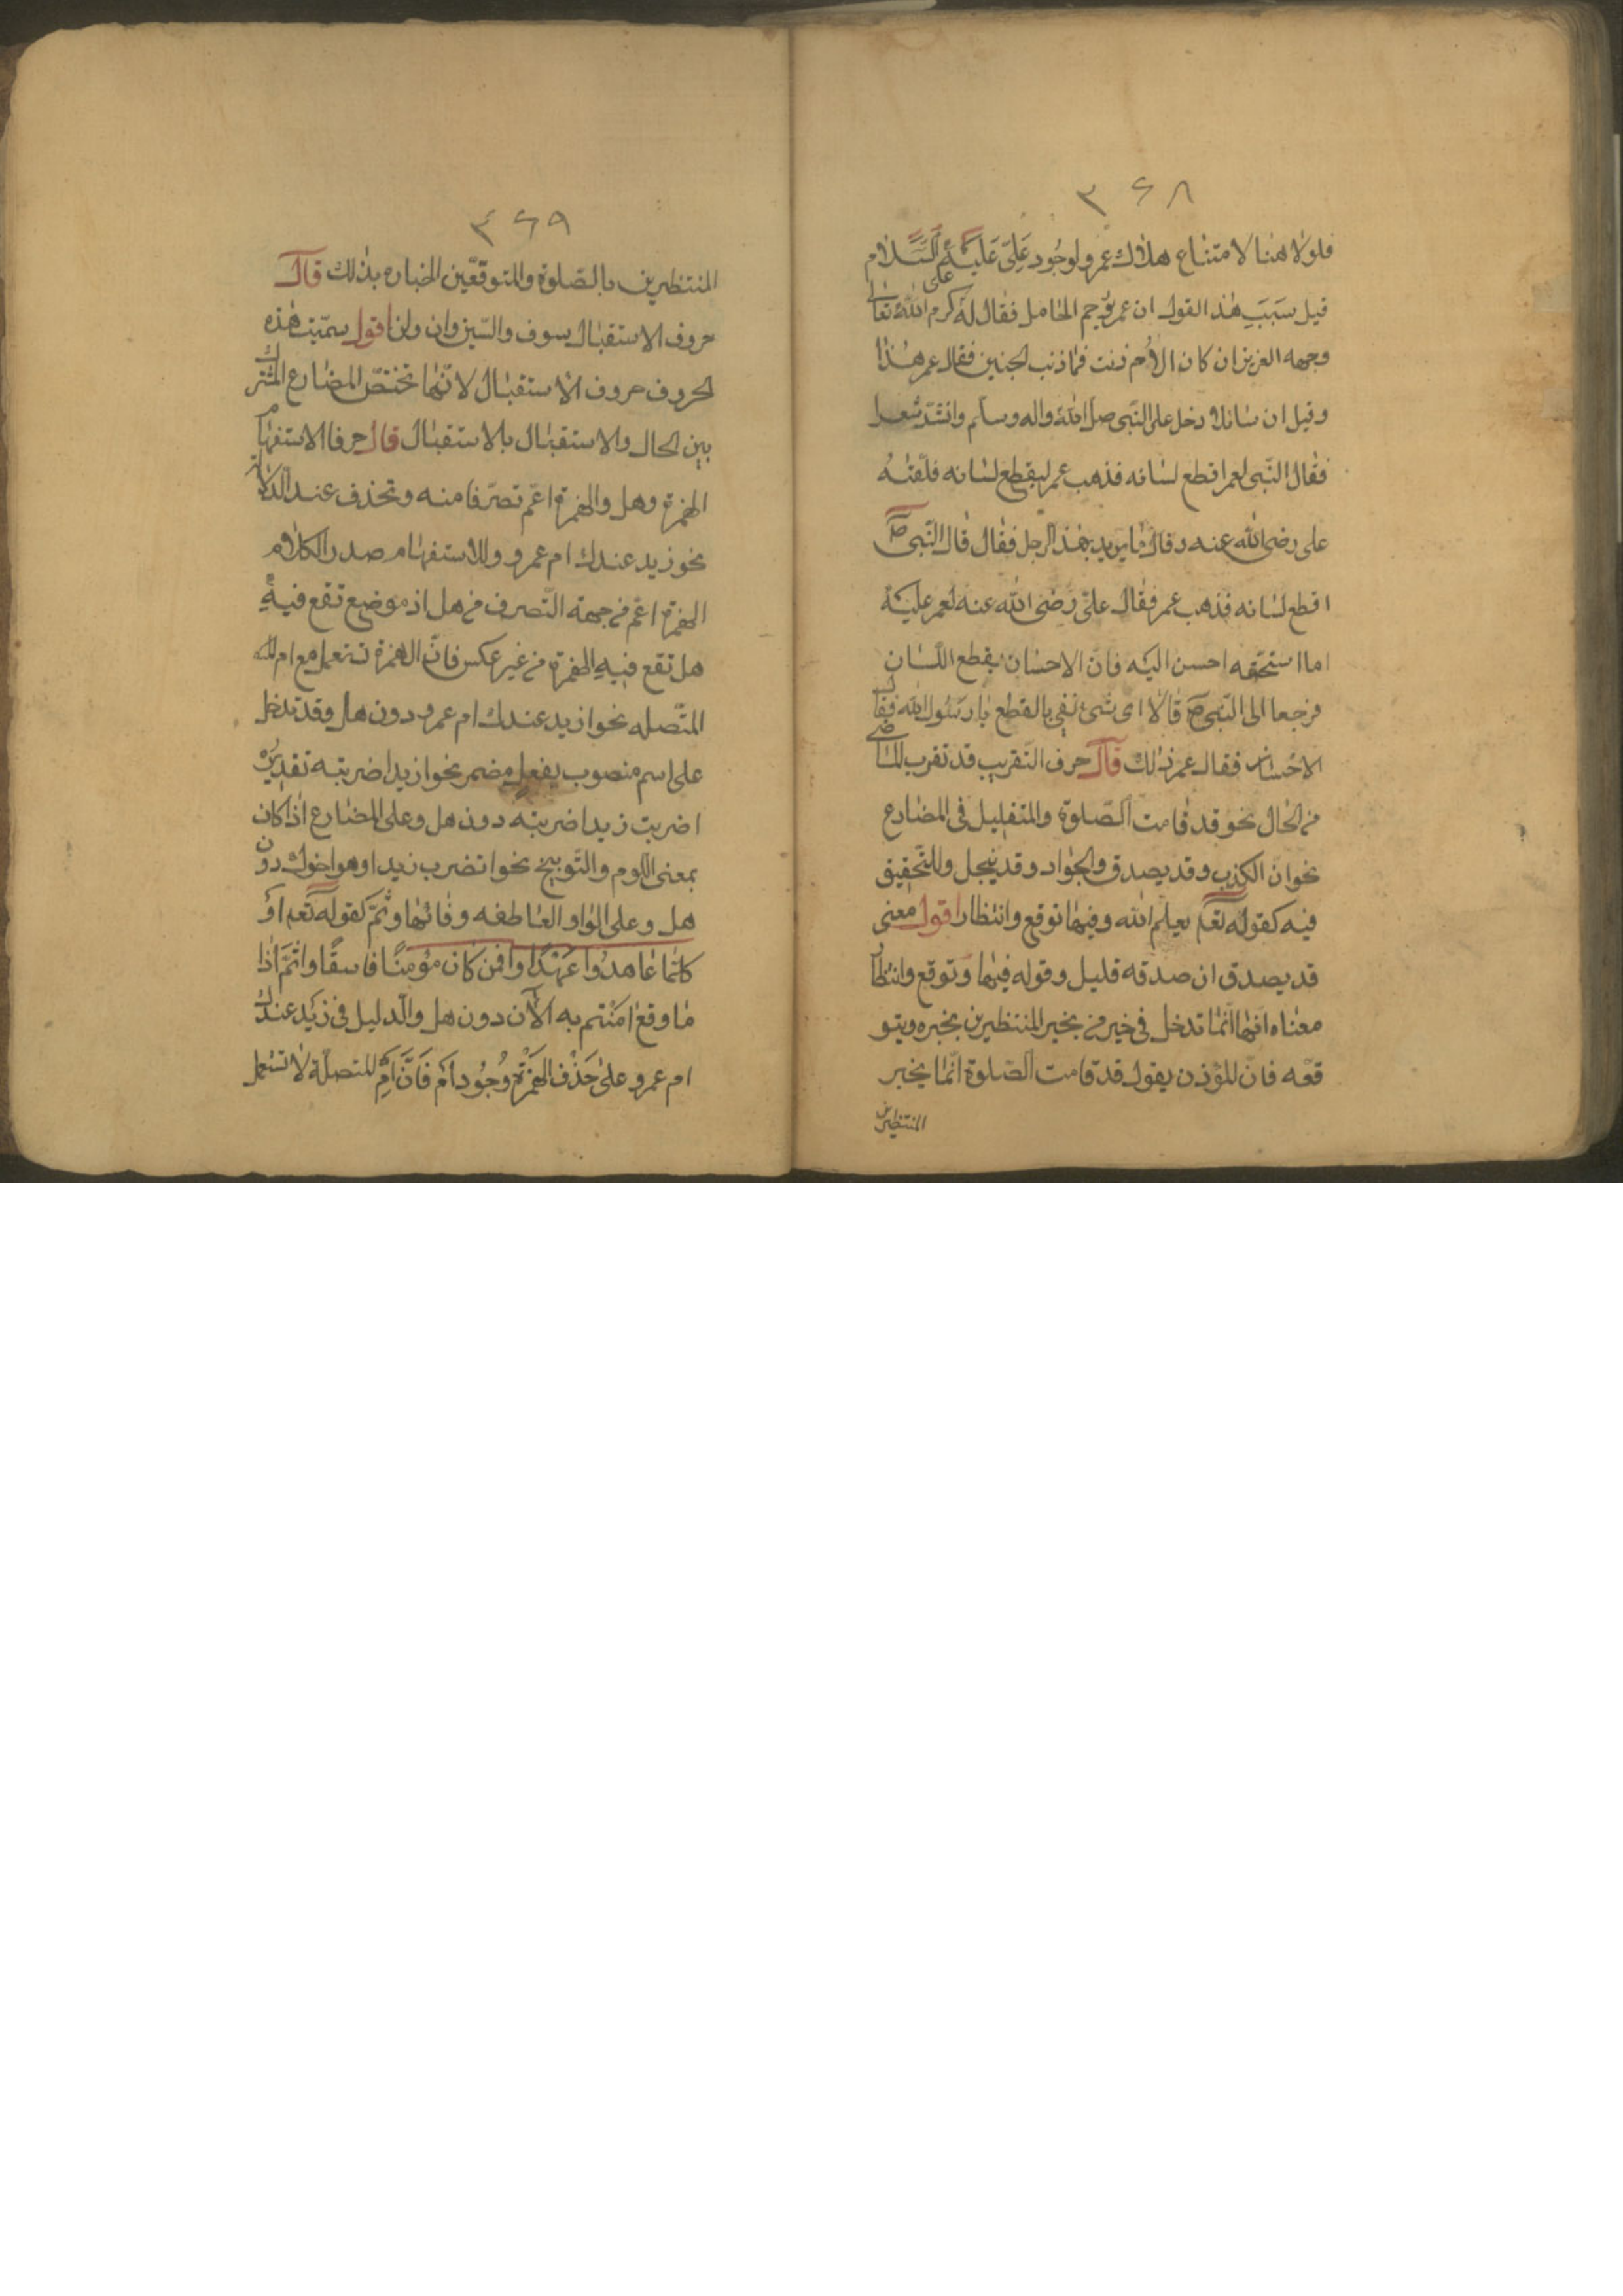 ٣٦٨
فلولا هنا لامتناع هلاك عمرو لوجود علىّ عليه السّلام
قيل سبب هذا القول ان عمر رجم الحامل فقال له على كرم الله تعالى
وجهه العزيز ان كان الام زنت فما ذنب الجنين فقال عمر هذا
وقيل ان سائلا دخل على النّبى صلى الله واله وسلم وانشد شعرا
فقال النّبى لعمر اقطع لسانه فذهب عمر ليقطع لسانه فلقته
على رضى الله عنه وقال ما يريد بهذ الرجل فقال قال النّبى ص
اقطع لسانه فذهب عمر فقال علىّ رضى الله عنه لعمر عليكه
اما استحقه احسن اليه فانّ الاحسان يقطع اللسان
فرجعا الى النّبى ص قالا اى شئ نفى بالقطع يا رسول الله فقال
الاحسان فقال عمر ذلك قال حرف التّقريب قد تقرب الماضى
من الحال نحو قد قامت الصّلوة والتقليل فى المضارع
نحو ان الكذب وقد يصدق والجواد وقد ينجل وللتّحقيق
فيه كقوله تعم يعلم الله وفيهما توقع وانتظار اقول معنى
قد يصدق ان صدقه قليل وقوله فيهما وتوقع وانتظار
معناه انهما انّما تدخل فى خير من يخبر المنتظيرين بخبره ويتو
قعه فانّ المؤذن يقول قد قامت الصّلوة انّما يخبر
المنتظرين
٣٦٩
المنتظيرين بالصّلوة والمتوقعّين اخباره بذلك قال
حروف الاستقبال سوف والسّين وان ولن اقول سمّيت هذه
الحروف حروف الاستقبال لانّها تختصّ المضارع المشترك
بين الحال والاستقبال بالاستقبال قال حرفا الاستفهام
الهمزة وهل والهمزة اعم تصرّفا منه وتحذف عند الدلالة
نحو زيد عندك ام عمرو وللاستفهام صدر الكلام
الهمزة اعّم من جهة التّصرف من هل اذ موضع تقع فيه
هل تقع فيه الهمزة من غير عكس فانّ الهمزة تستعمل مع ام
المتّصله نحو ازيد عندك ام عمرو دون هل وقد تدخل
على اسم منصوب بفعل مضمر نحو ازيدا ضربته تقديره
اضربت زيدا ضربته دون هل وعلى المضارع اذا كان
بمعنى اللوم والتّوبيخ نحو اتضرب زيدا وهو اخوك دون
هل وعلى الواو العاطفه وفائها وثمّ كقوله تعم او
كلّما عاهدوا عهدًا وافمن كان مؤمنًا فاسقًا واثمّ اذا
ما وقع امنتم به الآن دون هل والدليل فى زيد عندك
ام عمرو على حذف الهمزة وجود ام فانّ ام المتصلة لا تستعمل